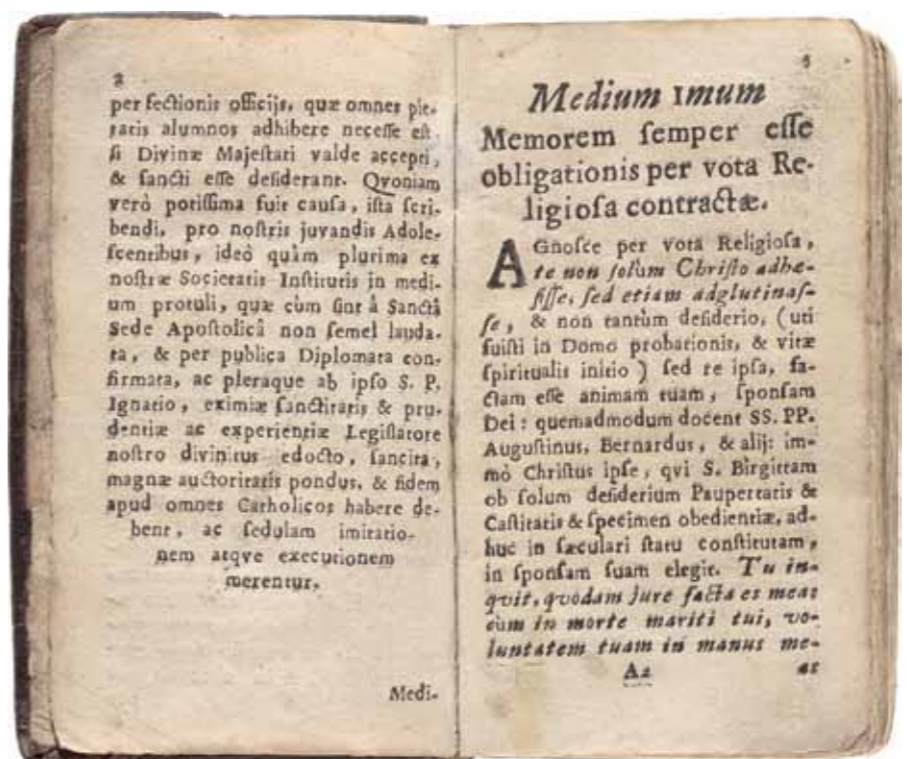 2
per fectionis officijs, quæ omnes pie-
tatis alumnos adhibere necesse est,
si Divinæ Majestati valde accepti,
& sancti esse desiderant. Qvoniam
verò potissima fuit causa, ista scri-
bendi, pro nostris juvandis Adole-
scentibus, ideò quàm plurima ex
nostræ Societatis Institutis in medi-
um protuli, quæ cùm sint â Sanctâ
Sede Apostolicâ non semel lauda-
ta, & per publica Diplomata con-
firmata, ac pleraque ab ipso S. P.
Ignatio, eximiæ sanctitatis & pru-
dentiæ ac experientiæ Legislatore
nostro divinitus edocto, sancita,
magnæ auctoritatis pondus, & fidem
apud omnes Catholicos habere de-
bent, ac sedulam imitatio-
nem atqve executionem
merentur.
Medi-
Medium 1mum
Memorem semper esse
obligationis per vota Re-
ligiosa contractæ.
AGnosce per vota Religiosa,
te non solùm Christo adhæ-
sisse, sed etiam adglutinas-
se, & non tantùm desiderio, (uti
fuisti in Domo probationis, & vitæ
spiritualis initio) sed re ipsa, fa-
ctam esse animam tuam, sponsam
Dei: quemadmodum docent SS. PP.
Augustinus, Bernardus, & alij: im-
mò Christus ipse, qvi S. Birgittam
ob solum desiderium Paupertatis &
Castitatis & specimen obedientiæ, ad-
huc in sæculari statu constitutam,
in sponsam suam elegit. Tu in-
qvit, qvodam jure facta es mea:
cùm in morte mariti tui, vo-
luntatem tuam in manus me-
A2 as